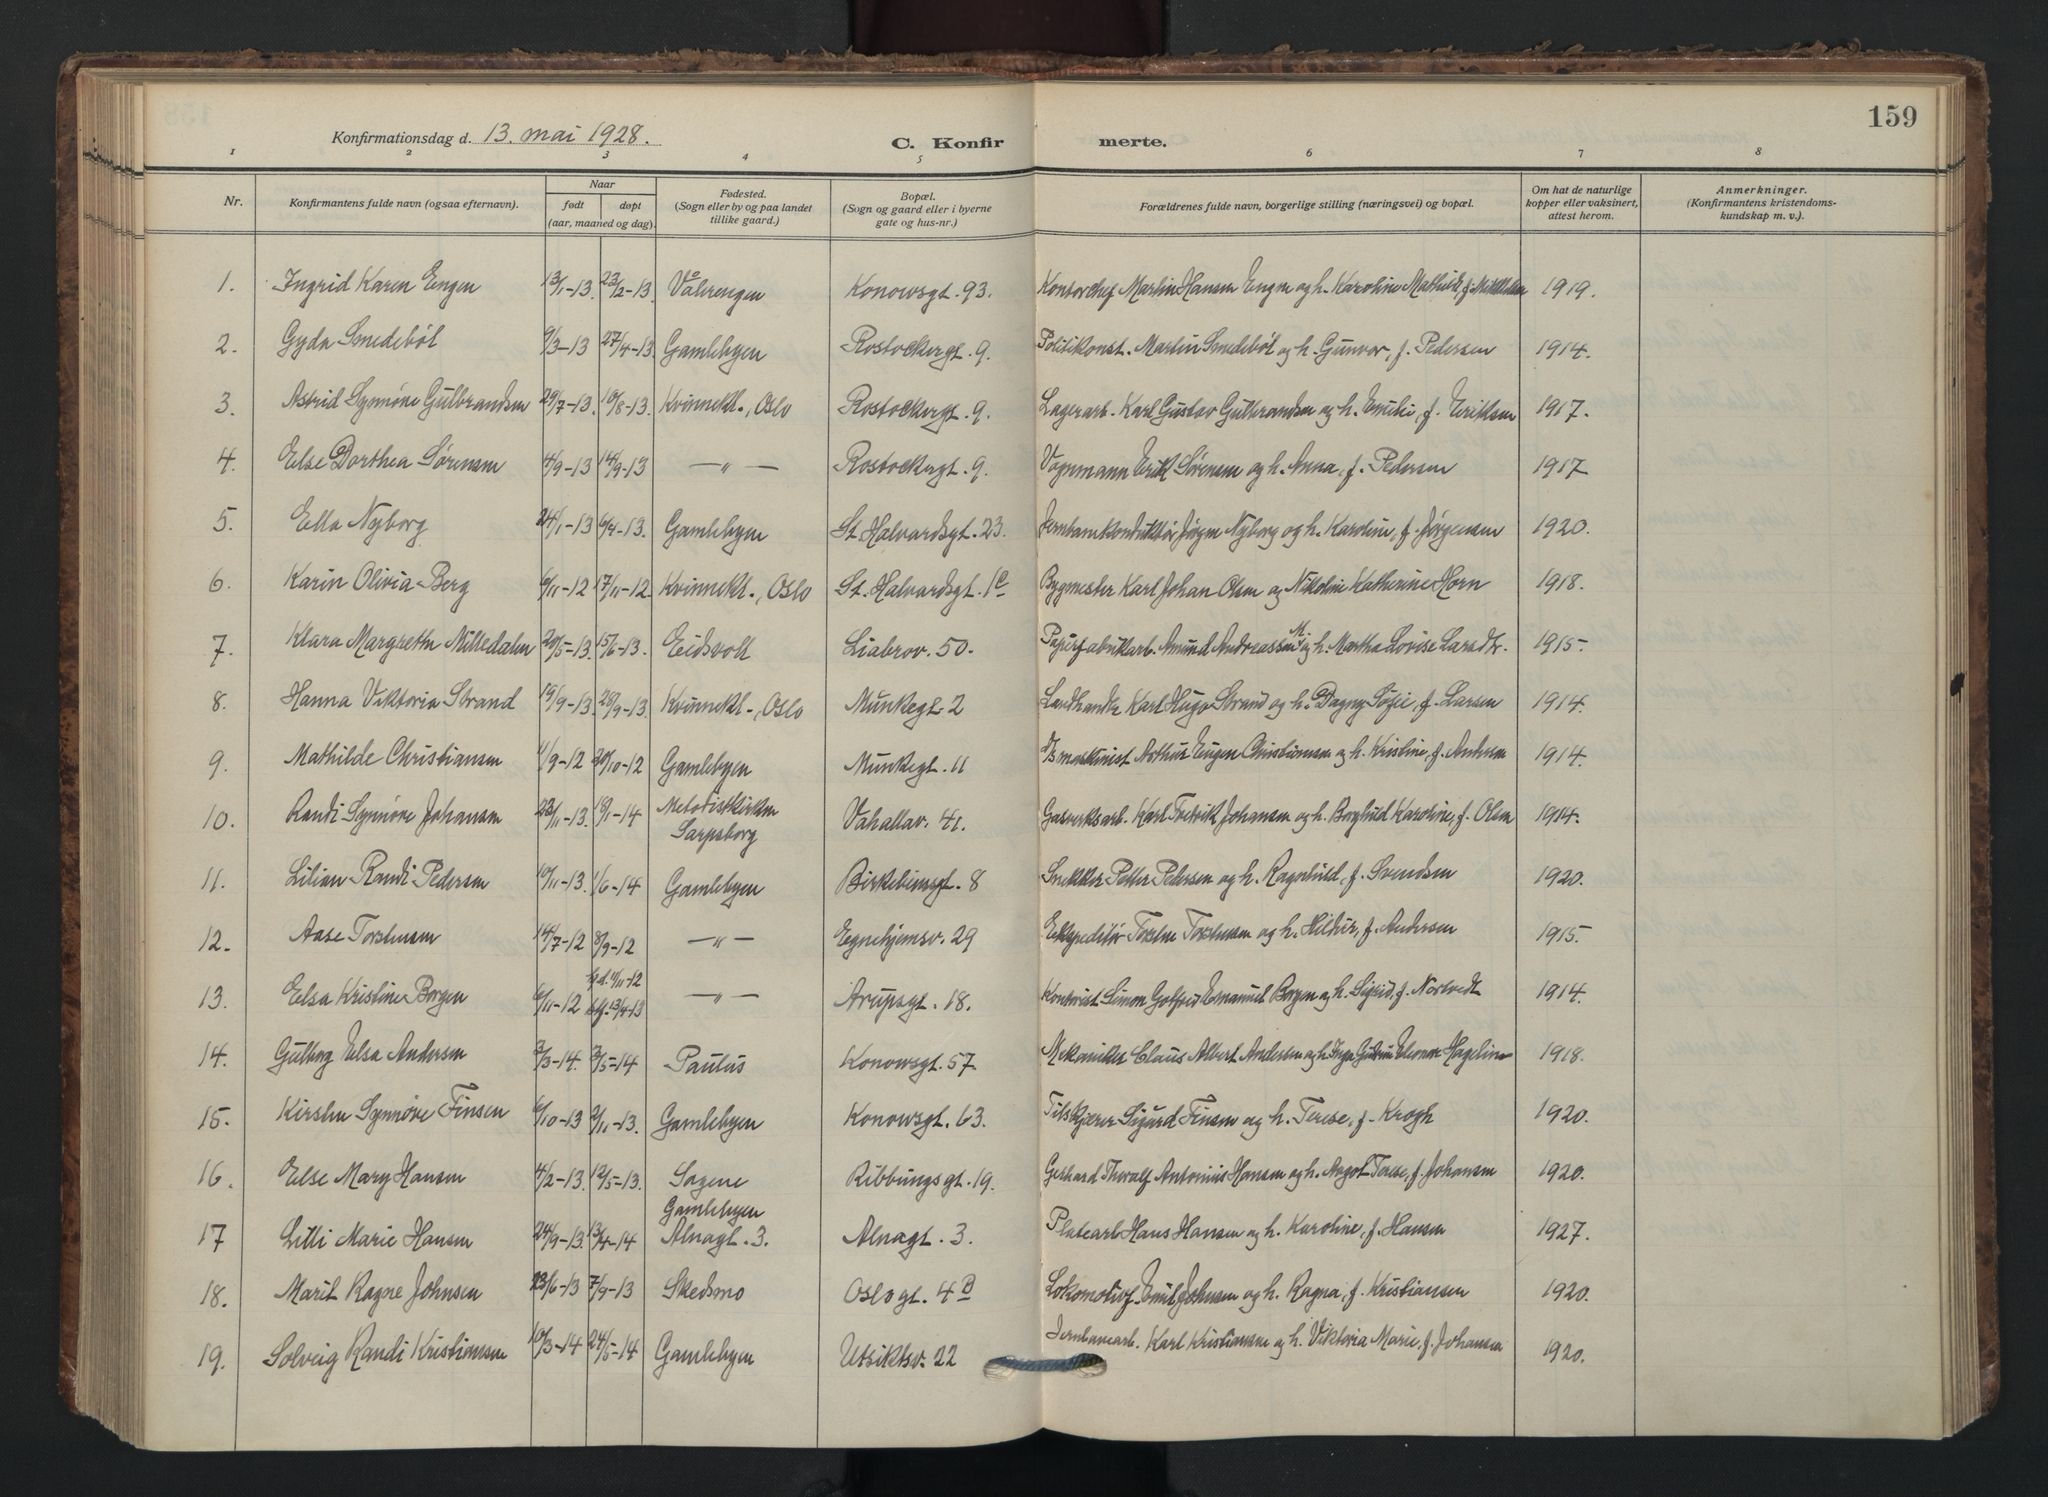 159
Konfirmationsdag d. 13. mai 1928.
C. Konfirmerte.
1 2 3 4 5 6 7 8
Nr.
Konfirmantens fulde navn (ogsaa efternavn).
Naar
født døpt
(aar, maaned og dag).
Fødested.
(Sogn eller by og paa landet
tillike gaard.)
Bopæl.
(Sogn og gaard eller i byerne
gate og hus-nr.)
Forældrenes fulde navn, borgerlige stilling (næringsvei) og bopæl.
Om hat de naturlige
kopper eller vaksinert,
attest herom.
Anmerkninger.
(Konfirmantens kristendoms-
kundskap m. v.).
1. Ingrid Karen Engen 13/1-13. 23/2-13 Vålerengen Konowsgt. 93. Kontorchef Martin Hansen Engen og h. Karoline Mathilde, f. 1919.
2. Gyda Smedebøl 9/3-13 27/4-13 Gamlebyen Rostockergt. 9. Politikonst. Martin Smedebøl og h. Gunvor, f. Pedersen 1914.
3. Astrid Synnøve Gulbrandsen 29/7-13. 10/8-13. Kvinnekl., Oslo Rostockergt. 9. Lagerarb. Karl Gustav Gulbrandsen og h. Emilie, f. Eriksen 1917.
4. Else Dorthea Sørensen 4/9-13 14/9-13 —"— Rostockergt. 9. Vognmann Erik Sørensen og h. Anna, f. Pedersen 1917
5. Ella Nyborg 24/1-13 6/4-13. Gamlebyen St. Halvardsgt. 23. Jernbanekonduktør Jørgen Nyborg og h. Karoline, f. Jørgensen 1920.
6. Karin Olivia Berg 6/11-12 17/11-12. Kvinnekl., Oslo St. Halvardsgt. 1c Bygmester Karl Johan Olsen og Nikoline Katherine Horn 1918.
7. Klara Margrethe Nittedalen 20/5-13. 15/6-13. Eidsvoll Liabrov. 50. Papirfabrikarb. Amund Andreassen N. og h. Martha Lovise Larsdtr. 1915.
8. Hanna Viktoria Strand 19/9-13. 28/9-13. Kvinnekl., Oslo Munkegt. 2 Landhandler Karl Hugo Strand og h. Dagny Sofie, f. Larsen 1914.
9. Mathilde Christiansen 1/9-12 20/10-12 Gamlebyen Munkegt. 11 maskinist Arthur Eugen Christiansen og h. Kristine, f. Andersen 1914.
10. Randi Synnøve Johansen 23/11-13. 18/1-14 Metodistkirken Vahallav. 41. Gasverksarb. Karl Fredrik Johansen og h. Borghild Karoline, f. Olsen 1914.
Sarpsborg
11. Lilian Randi Pedersen 10/11-13. 1/6-14 Gamlebyen Birkebeinergt. 8 Snekker Petter Pedersen og h. Ragnhild, f. Svendsen 1920.
12. Aase Torstensen 14/7-12 8/9-12 —"— Egnehjemsv. 29 Ekspeditør Torsten Torstensen og h. Hildur, f. Andersen 1915.
hj.d. 11/11-12
13. Elsa Kristine Borgen 6/11-12 13/4-13 —"— Arupsgt. 18. Kontorist Simon Gotfred Emanuel Borgen og h. Sigrid, f. Nortvedt 1914.
14. Gulborg Elsa Andersen 3/3-14. 3/5-14 Paulus Konowsgt. 57. Mekaniker Claus Albert Andersen og h. Inga Eleonore Hagelin 1918.
15. Kirsten Synnøve Finsen 6/10-13 2/11-13. Gamlebyen Konowsgt. 63. Tilskjærer Sigurd Finsen og h. Terese, f. Krogh 1920.
16. Else Mary Hansen 4/2-13. 12/5-13. Sagene Ribbungsgt. 19. Gerhard Thoralf Antonius Hansen og h. Aagot Terese, f. Johansen 1920.
Gamlebyen
17 Lilli Marie Hansen 24/9-13. 13/4-14 Alnagt. 3. Alnagt. 3. Platearb. Hans Hansen og h. Karoline, f. Hansen 1927.
18. Marit Ragne Johnsen 23/6-13 7/9-13 Skedsmo Oslogt. 4B Lokomotivf. Emil Johnsen og h. Ragna, f. Kristiansen 1920.
19. Solveig Randi Kristiansen 10/3-14 24/5-14 Gamlebyen Utsiktsv. 22 Jernbanearb. Karl Kristiansen og h. Viktoria Marie, f. Johansen 1920.